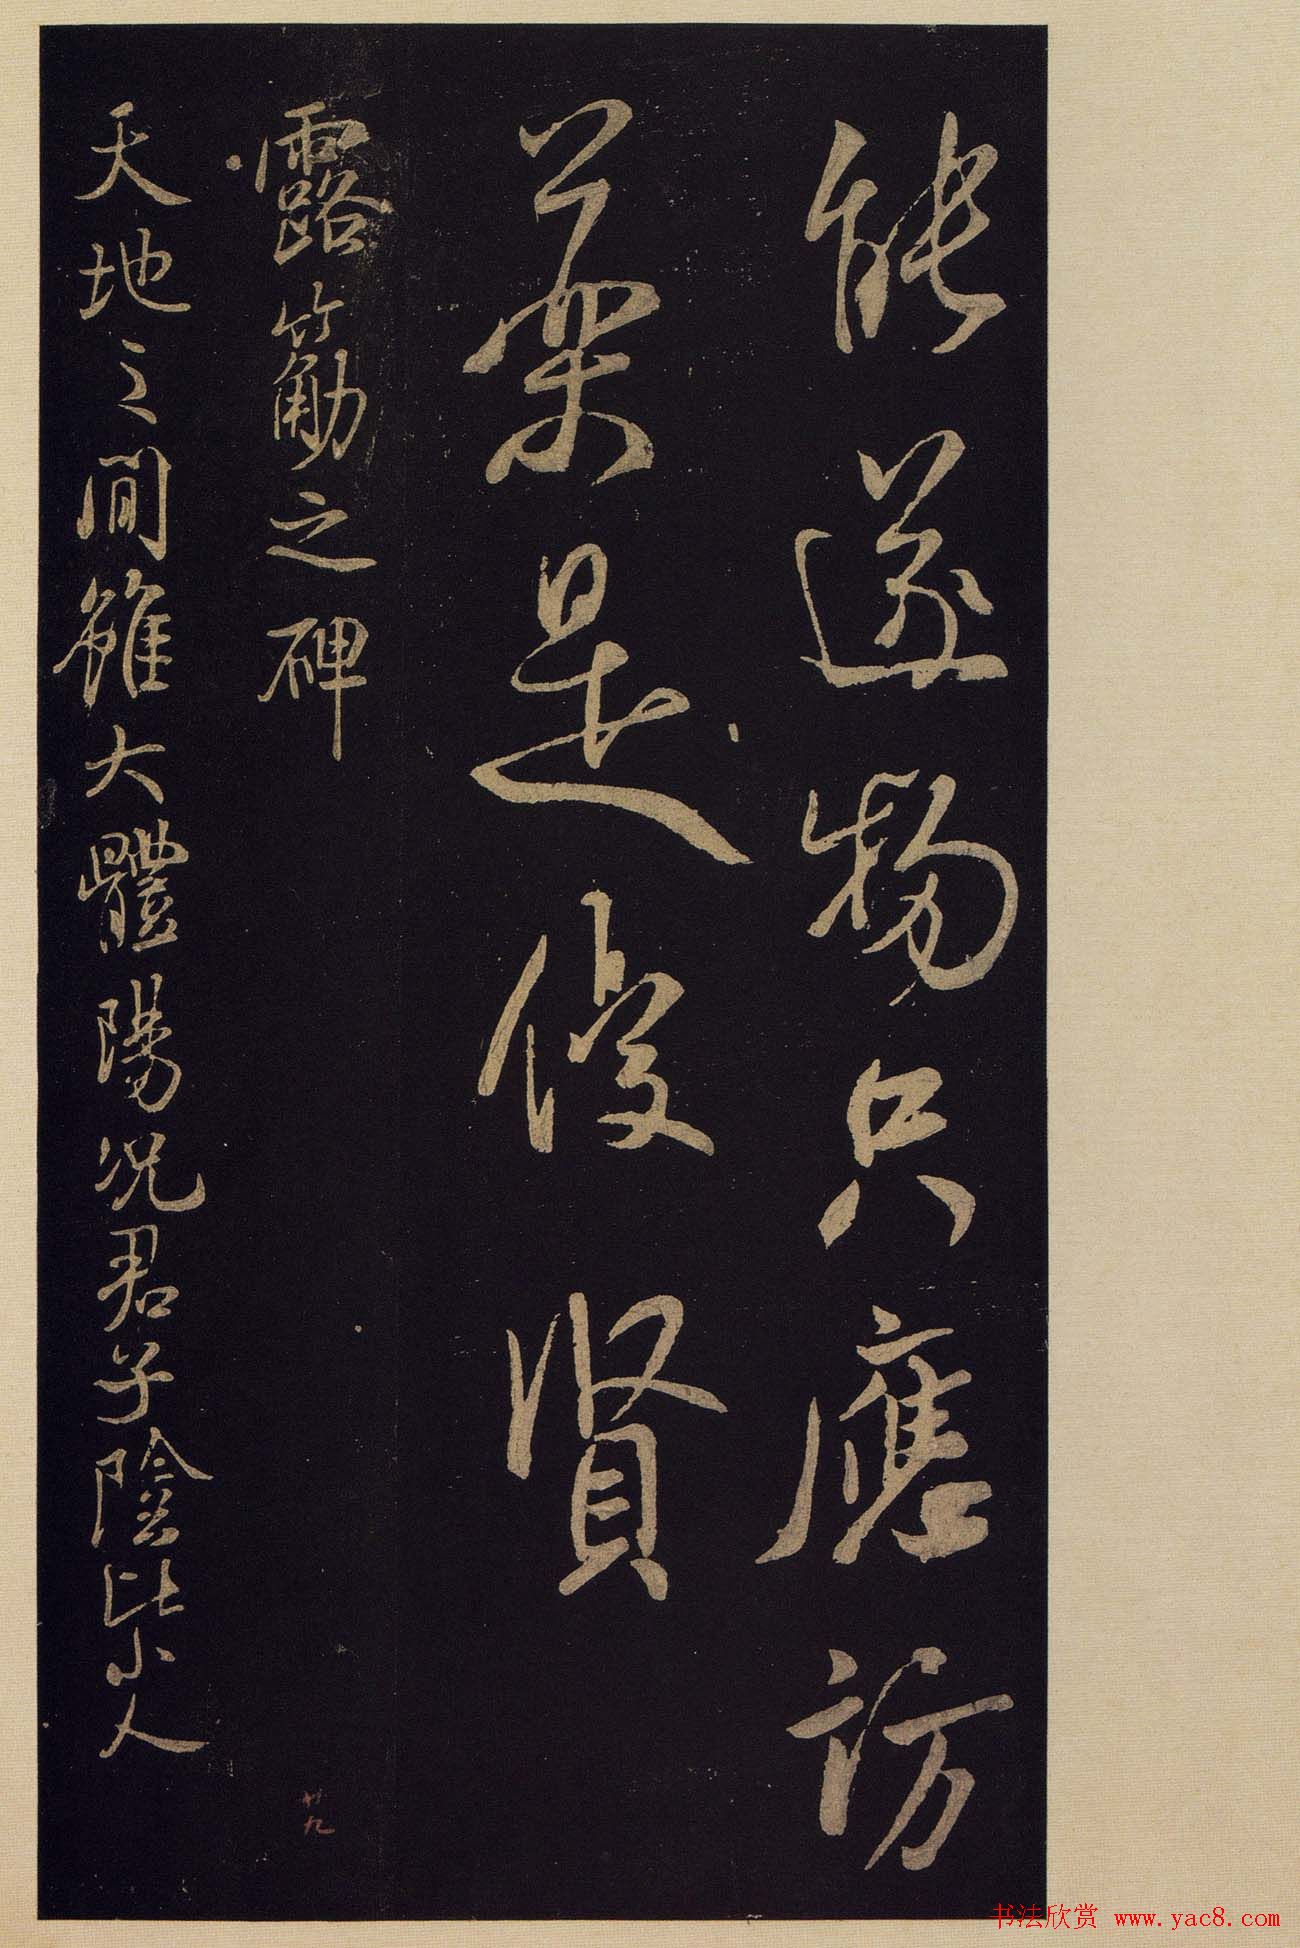 能遂物只應訪
藥是俊賢
露筋之碑
天地之間雖大體陽况君子陰比小人
廿九
书法欣赏 www.yac8.com